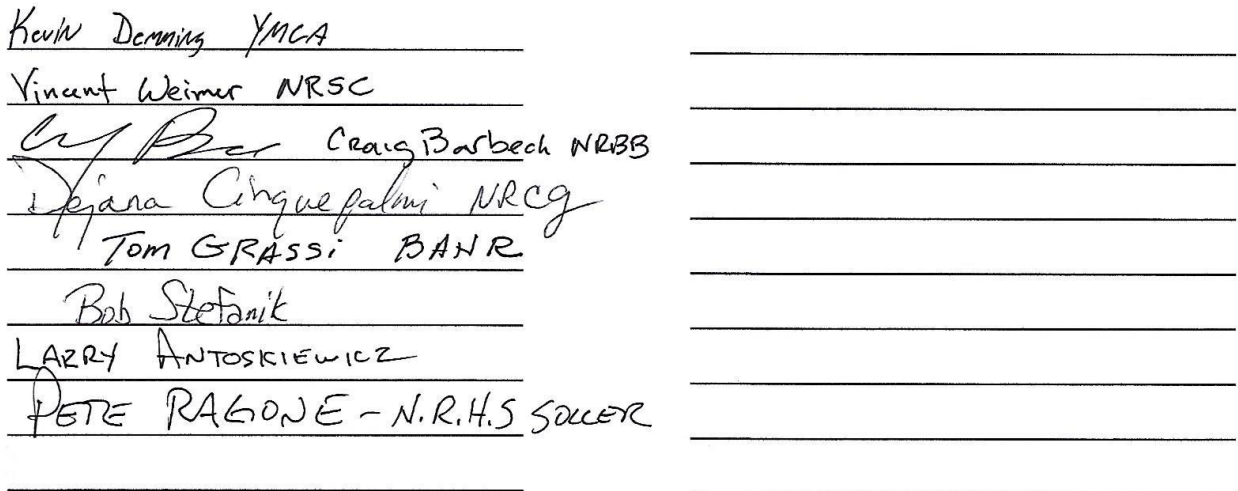 Kevin Demming YMCA
Vincent Weimer NRSC
Craig Barbech NRBB
Dejana Cinquepalmi NRCG
Tom GRASSi BANR
Bob Stefanik
LARRY ANTOSKIEWICZ
PETE RAGONE - N.R.H.S SOCCER